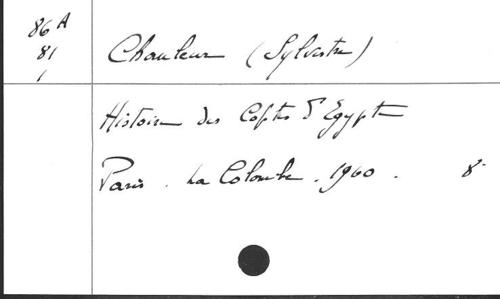 86 A
81
1
Chauleur (Sylvestre)
Histoire des Coptes d'Egypte
Paris. La Colombe. 1960. 8°